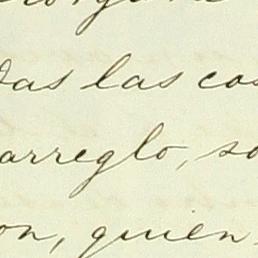 das las cos
arreglo, so
on, quien